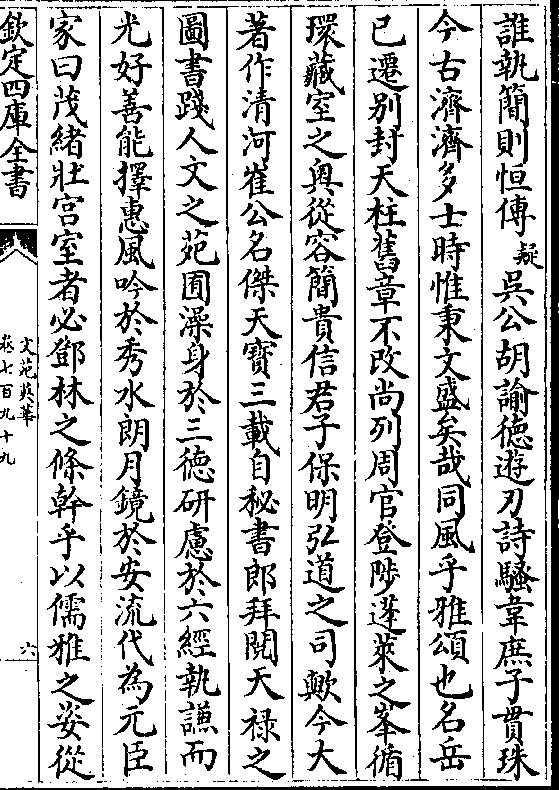 誰執簡則恒傳疑吳公胡諭德遊刃詩騷韋庶子貫珠
今古濟濟多士時惟秉文盛矣哉同風乎雅頌也名岳
已遷别封天柱舊章不改尚列周官登陟蓬萊之峯循
環藏室之奥從容簡貴信君子保明弘道之司歟今大
著作清河崔公名傑天寳三載自秘書郎拜閲天禄之
圖書踐人文之苑囿澡身於三德研慮於六經執謙而
光好善能擇惠風吟於秀水朗月鏡於安流代為元臣
家曰茂緒壯宫室者必鄧林之條幹乎以儒雅之姿從
欽定四庫全書
文苑英華
卷七百九十九
六